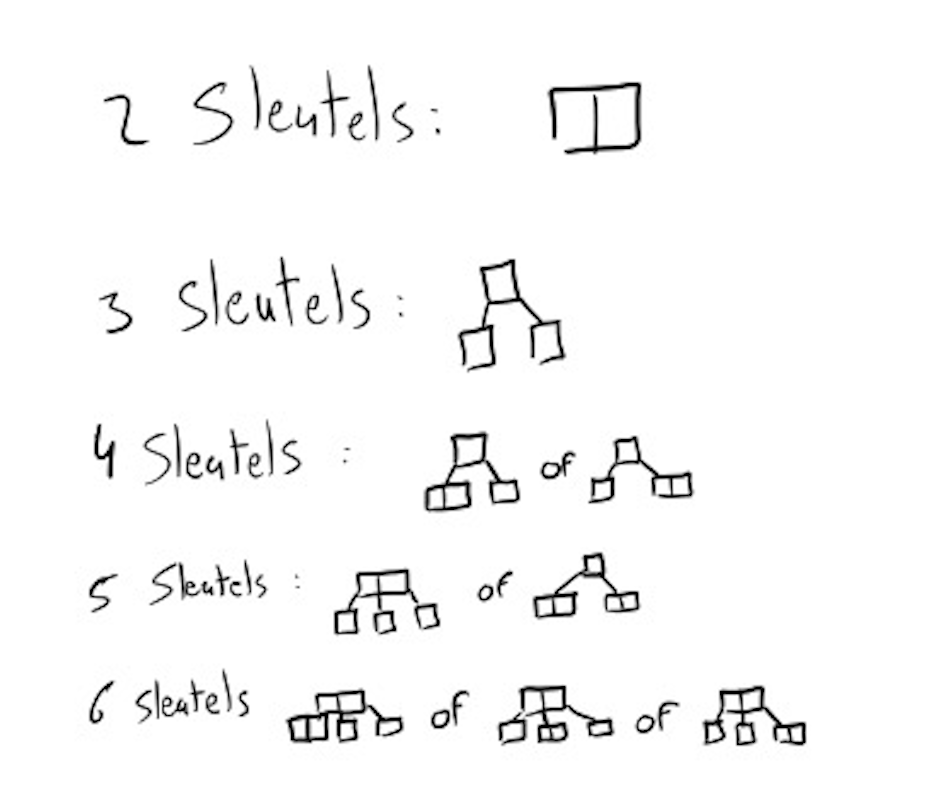 2 Sleutels:
3 Sleutels:
4 Sleutels : of
5 Sleutels : of
6 sleutels of of